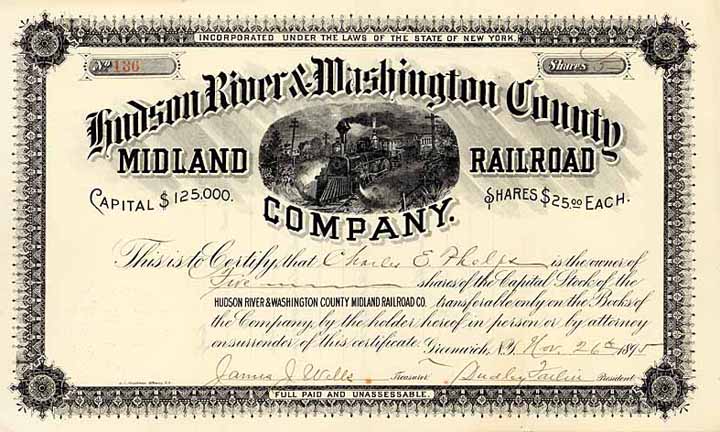 INCORPORATED UNDER THE LAWS OF THE STATE OF NEW YORK.
No 136 Shares 5
Hudson River & Washington County
MIDLAND RAILROAD
CAPITAL $125,000. SHARES $25.00 EACH.
COMPANY.
This is to Certify, that Charles E. Phelps is the owner of
Five shares of the Capital Stock of the
HUDSON RIVER & WASHINGTON COUNTY MIDLAND RAILROAD CO. transferable only on the Books of
the Company, by the holder hereof in person or by attorney
on surrender of this certificate. Greenwich, N.Y. Nov. 26th 1895
James J. Wells Treasurer Dudley President
FULL PAID AND UNASSESSABLE.